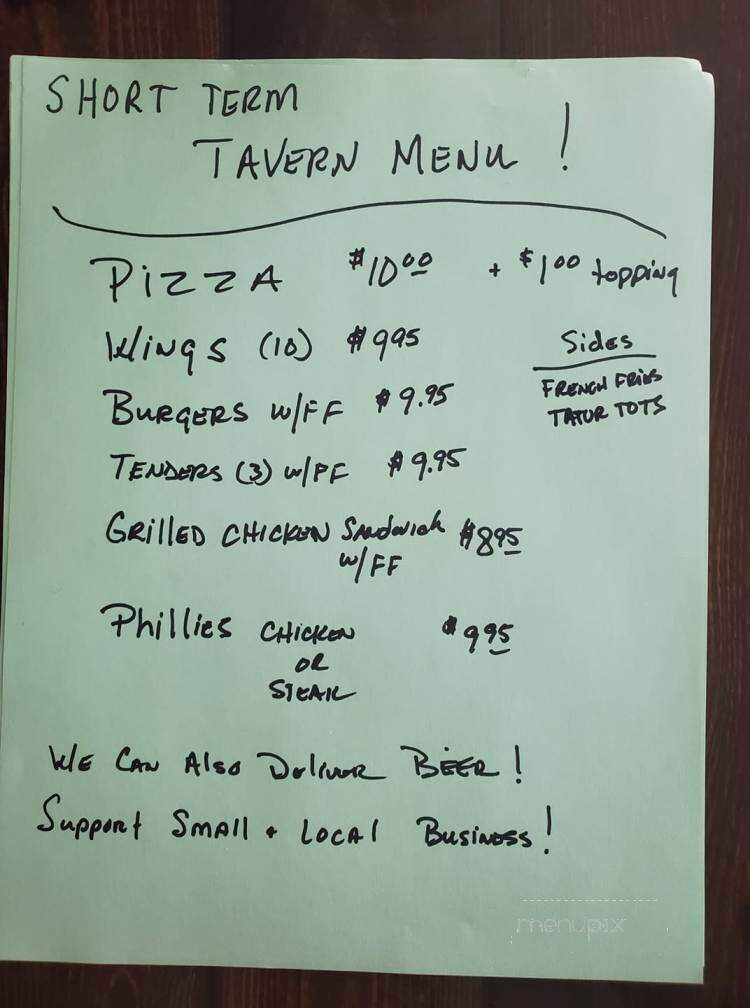 SHORT TERM
TAVERN MENU!
PIZZA $10.00 + $1.00 topping
WINGS (10) $9.95
BURGERS W/FF $9.95
TENDERS (3) w/FF $9.95
GRILLED CHICKEN Sandwich $8.95
W/FF
Phillies CHICKEN $9.95
OR
STEAK
Sides
FRENCH FRIES
TATUR TOTS
WE CAN Also Deliver BEER!
Support SMALL + LOCAL Business!
menupix